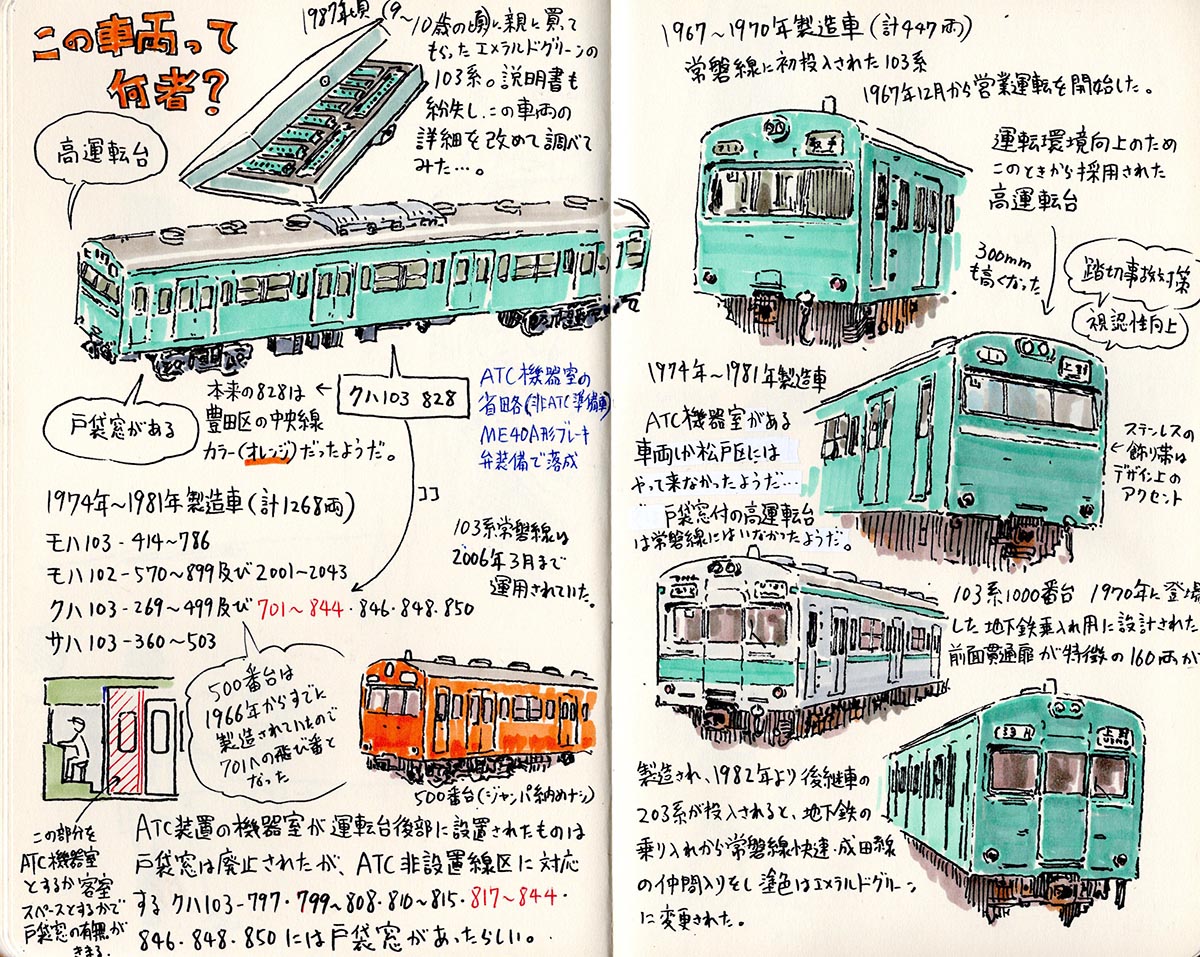 この車両って
何者?
1987年頃(9~
10歳の頃)に親に買って
もらったエメラルドグリーンの
103系。説明書も
紛失し、この車両の
詳細を改めて調べて
みた…。
高運転台
戸袋窓がある
本来の828は
豊田区の中央線
カラー(オレンジ)だったようだ。
クハ103 828
ATC機器室の
省田谷(非ATC準備車)
ME40A形ブレーキ
弁装備で落成
ココ
1974年~1981年製造車(計1268両)
モハ103-414~786
モハ102-570~899及び2001~2043
クハ103-269~499及び701~844・846・848・850
サハ103-360~503
103系常磐線は
2006年3月まで
運用されていた。
500番台は
1966年からすでに
製造されていたので
701への飛び番と
なった
500番台(ジャンパ納めナシ)
この部分を
ATC機器室
とするか客室
スペースとするかで
戸袋窓の有無が
きまる
ATC装置の機器室が運転台後部に設置されたものは
戸袋窓は廃止されたが、ATC非設置線区に対応
する クハ103-797・799~808・810~815・817~844・
846・848・850には戸袋窓があったらしい。
1967~1970年製造車(計447両)
常磐線に初投入された103系
1967年12月から営業運転を開始した。
取手
運転環境向上のため
このときから採用された
高運転台
300mm
も高くなった
踏切事故対策
視認性向上
1974年~1981年製造車
ATC機器室がある
車両しか松戸区には
やって来なかったようだ…
戸袋窓付の高運転台
は常磐線にはいなかったようだ。
上野
ステンレスの
飾り帯は
デザイン上の
アクセント
103系1000番台 1970年に登場
した地下鉄乗入れ用に設計された
前面貫通扉が特徴の160両が
製造され、1982年より後継車の
203系が投入されると、地下鉄の
乗り入れから常磐線快速・成田線
の仲間入りをし塗色はエメラルドグリーン
に変更された。
上野
UENO